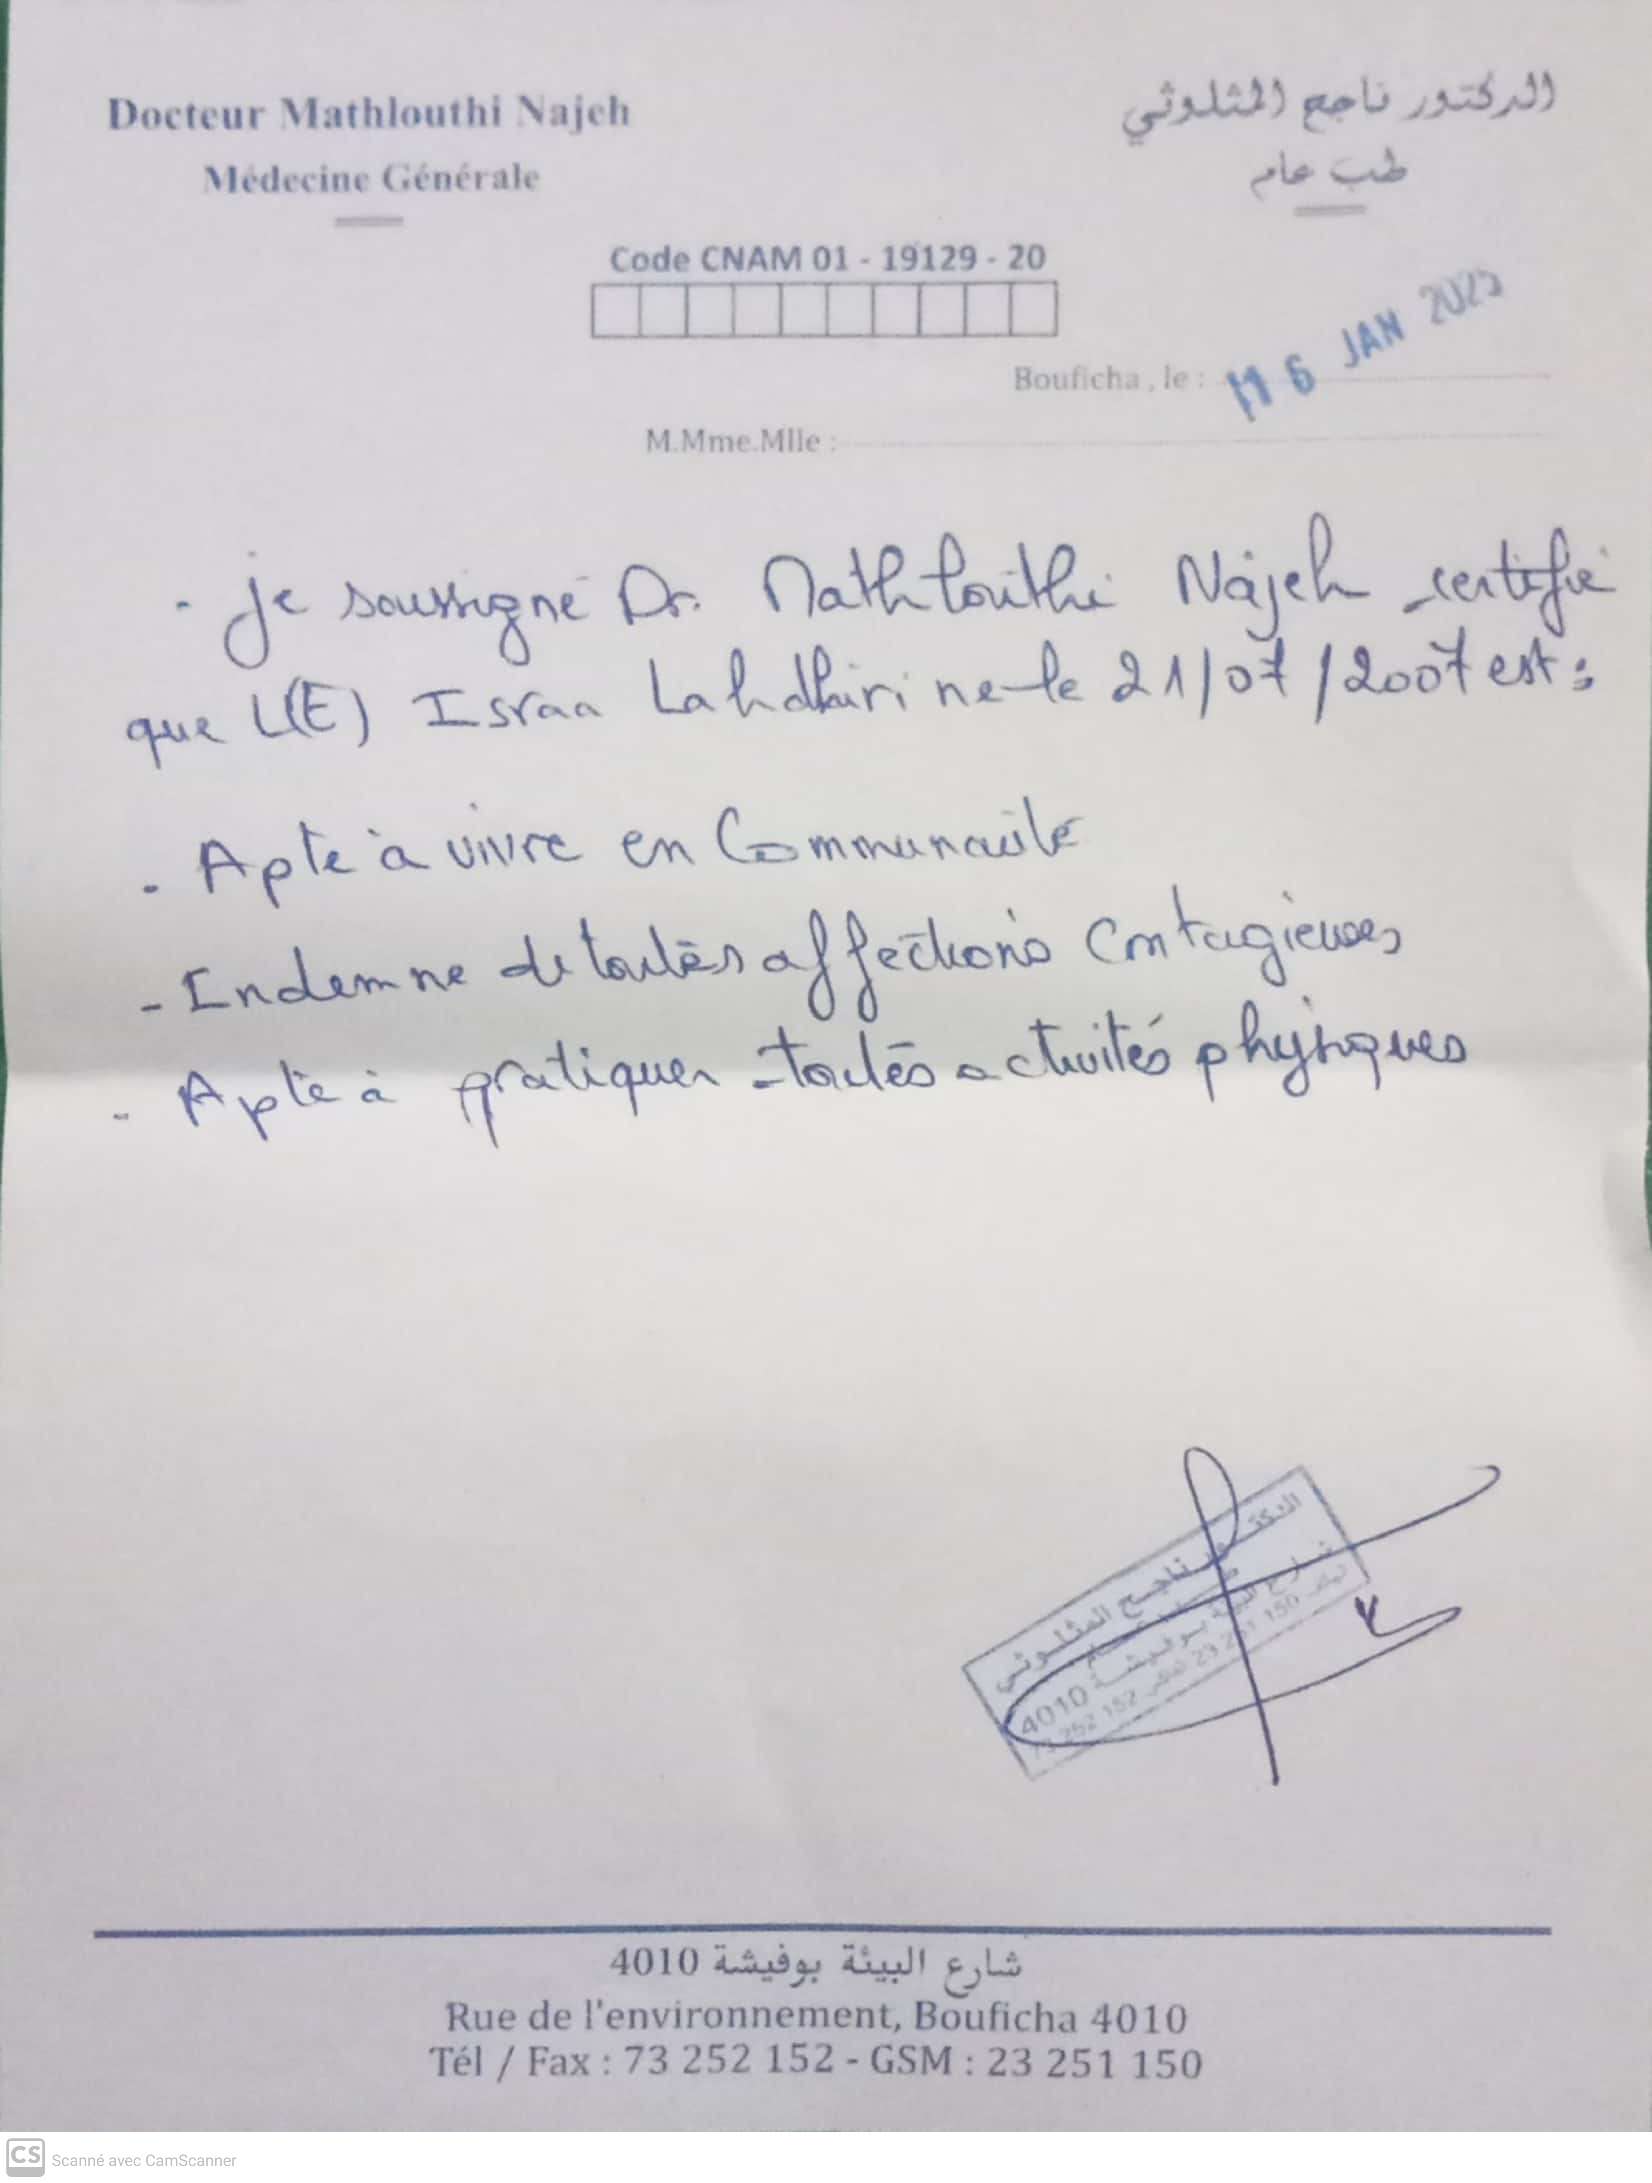 Docteur Mathlouthi Najeh
الدكتور ناجح المثلوثي
Médecine Générale
طب عام
Code CNAM 01 - 19129 - 20
Bouficha , le : 16 JAN 2025
M.Mme.Mlle :
- Je soussigné Dr. Mathlouthi Najeh certifie
que L(E) Israa Lahdhiri né le 21/07/2007 est :
- Apte à vivre en Communauté
- Indemne de toutes affections contagieuses
- Apte à pratiquer toutes activités physiques
الدكتور ناجح المثلوثي
طب عام
شارع البيئة بوفيشة 4010
73 252 152 23 251 150
شارع البيئة بوفيشة 4010
Rue de l'environnement, Bouficha 4010
Tél / Fax : 73 252 152 - GSM : 23 251 150
CS Scanné avec CamScanner